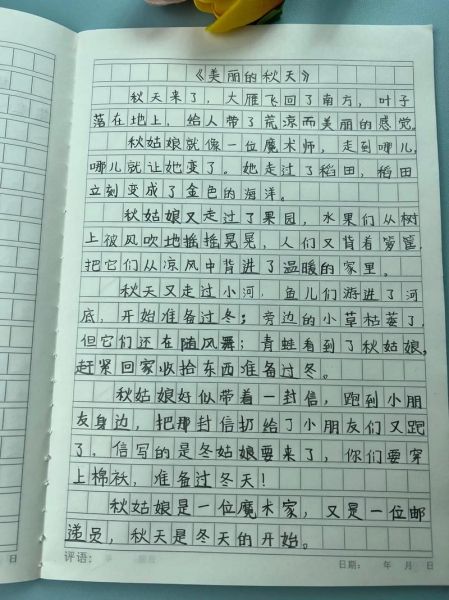 《美丽的秋天》
秋天来了，大雁飞回了南方，叶子
落在地上，给人带了荒凉而美丽的感觉。
秋姑娘就像一位魔术师，走到哪儿，
哪儿就让她变了。她走过了稻田，稻田
立刻变成了金色的海洋。
秋姑娘又走过了果园，水果们从树
上被风吹地摇摇晃晃，人们又背着箩筐，
把它们从凉风中背进了温暖的家里。
秋天又走过小河，鱼儿们游进了河
底，开始准备过冬；旁边的小草枯萎了，
但它们还在随风舞；青蛙看到了秋姑娘，
赶紧回家收拾东西准备过冬。
秋姑娘好似带着一封信，跑到小朋
友身边，把那封信扔给了小朋友们又跑
了，信写的是冬姑娘要来了，你们要穿
上棉袄，准备过冬天！
秋姑娘是一位魔术家，又是一位邮
递员，秋天是冬天的开始。
日 评语： 日期： 年 月 日